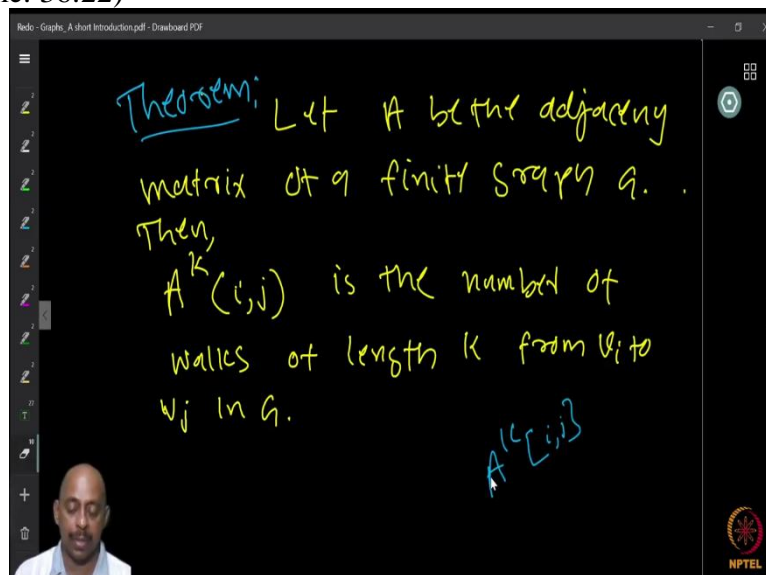 Redo - Graphs_A short Introduction.pdf - Drawboard PDF
Theorem: Let A be the adjaceny
matrix of a finite graph G.
Then,
A^k (i,j) is the number of
walks of length k from vi to
vj in G.
A^k [i,j]
NPTEL